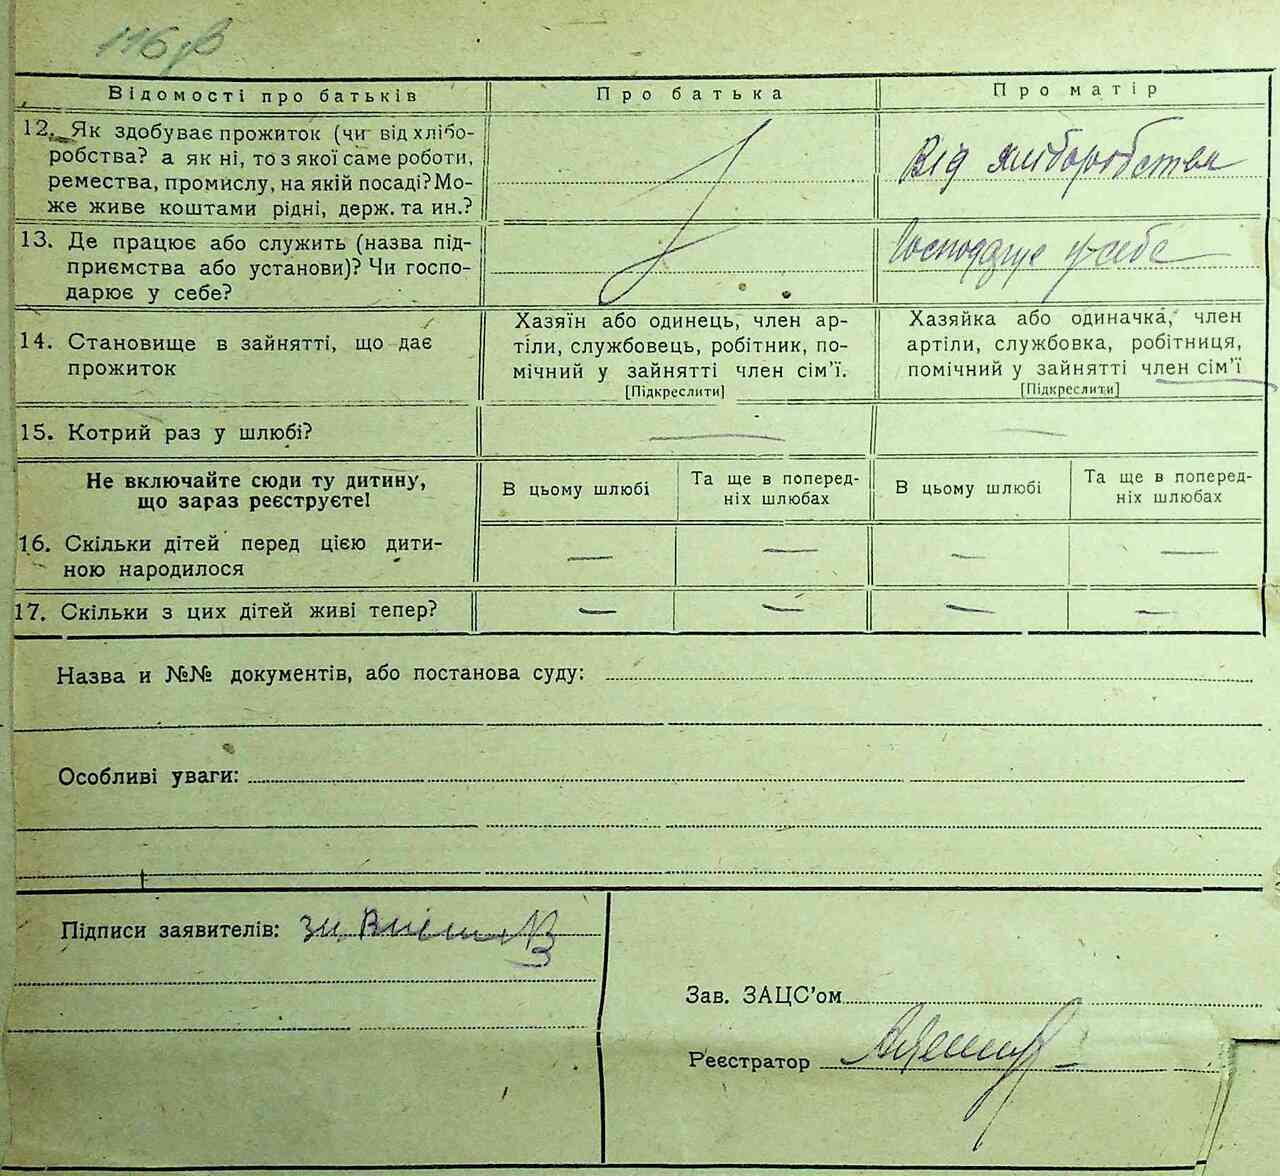 116
Відомості про батьків
Про батька
Про матір
12. Як здобуває прожиток (чи від хлібо-
робства? а як ні, то з якої саме роботи,
ремества, промислу, на якій посаді? Мо-
же живе коштами рідні, держ. та ин.?
Від хліборобства
13. Де працює або служить (назва під-
приємства або установи)? Чи госпо-
дарює у себе?
Господарює у себе
14. Становище в зайнятті, що дає
прожиток
Хазяїн або одинець, член ар-
тіли, службовець, робітник, по-
мічний у зайнятті член сім'ї.
[Підкреслити]
Хазяйка або одиначка, член
артіли, службовка, робітниця,
помічний у зайнятті член сім'ї
[Підкреслити]
15. Котрий раз у шлюбі?
— —
Не включайте сюди ту дитину,
що зараз реєструєте!
В цьому шлюбі
Та ще в поперед-
ніх шлюбах
В цьому шлюбі
Та ще в поперед-
ніх шлюбах
16. Скільки дітей перед цією дити-
ною народилося
— — — —
17. Скільки з цих дітей живі тепер?
— — — —
Назва и №№ документів, або постанова суду:
Особливі уваги:
Підписи заявителів:
Зав. ЗАЦС'ом
Реєстратор